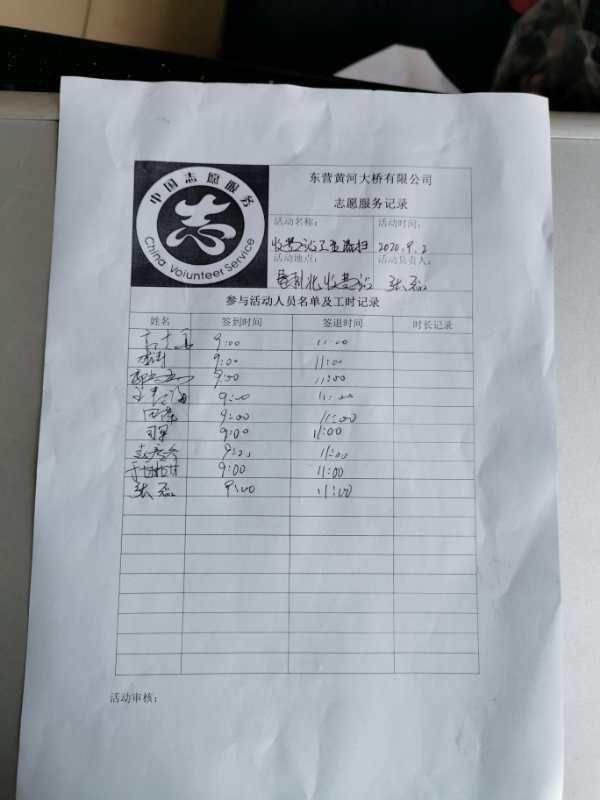 中国志愿服务
志
China Volunteer Service
东营黄河大桥有限公司
志愿服务记录
活动名称： 活动时间：
收费站卫生清扫 2020.9.2
活动地点： 活动负责人：
垦利北收费站 张磊
参与活动人员名单及工时记录
姓名 签到时间 签退时间 时长记录
9:00 11:00
9:00 11:00
9:00 11:00
9:00 11:00
9:00 11:00
9:00 11:00
9:00 11:00
9:00 11:00
张磊 9:00 11:00
活动审核：